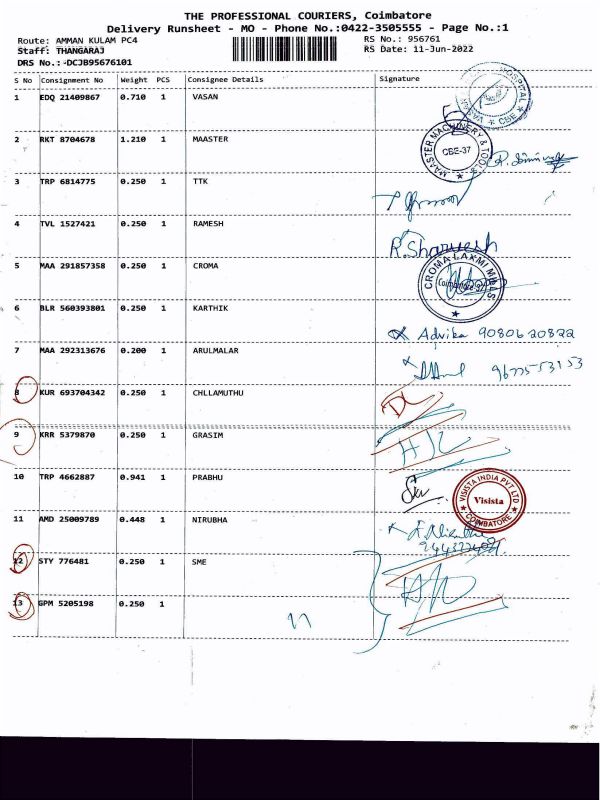 THE PROFESSIONAL COURIERS, Coimbatore
Delivery Runsheet - MO - Phone No.:0422-3505555 - Page No.:1
Route: AMMAN KULAM PC4 RS No.: 956761
Staff: THANGARAJ RS Date: 11-Jun-2022
DRS No.:-DCJB95676101
S No Consignment No Weight PCS Consignee Details Signature
1 EDQ 21409867 0.710 1 VASAN
2 RKT 8704678 1.210 1 MAASTER
MAASTER MACHINERY & TOOLS
CBE-37
3 TRP 6814775 0.250 1 TTK
4 TVL 1527421 0.250 1 RAMESH
R.Sharvesh
5 MAA 291857358 0.250 1 CROMA
CROMA LAXMI MILLS
6 BLR 560393801 0.250 1 KARTHIK
Advika 9080620822
7 MAA 292313676 0.200 1 ARULMALAR
8 KUR 693704342 0.250 1 CHLLAMUTHU
DL
9 KRR 5379870 0.250 1 GRASIM
10 TRP 4662887 0.941 1 PRABHU
VISISTA INDIA PVT LTD
Visista
COIMBATORE
11 AMD 25009789 0.448 1 NIRUBHA
12 STY 776481 0.250 1 SME
13 GPM 5205198 0.250 1